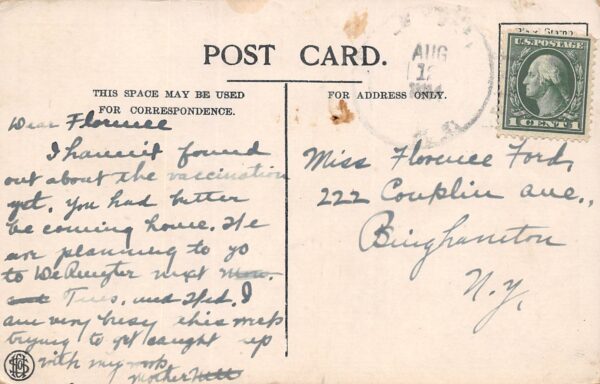 POST CARD.
THIS SPACE MAY BE USED
FOR CORRESPONDENCE.
FOR ADDRESS ONLY.
AUG
U.S. POSTAGE
1 CENT 1
Dear Florence
I haven't found
out about the vaccination
yet. You had better
be coming home. We
are planning to go
to DeRuyter next Mon.
and Tues. and Wed. I
am very busy this week
trying to get caught up
with my work
Mother
Miss Florence Ford,
222 Conklin ave.,
Binghamton
N.Y.